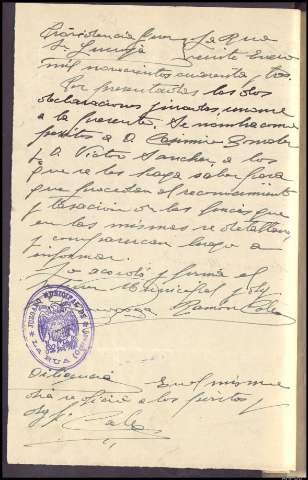 Providencia Juez La Rua
Sr. veinte Enero
mil novecientos cuarenta tres.
Por presentadas las dos
declaraciones juradas, unanse
a la presente. Se nombra como
peritos a D. Casimiro Gonzalez
y D. Victor Sanchez, a los
que se les haga saber para
que procedan al reconocimiento
y tasación de las fincas que
en las mismas se detallan,
y comparezcan luego a
informar.
Lo acordó y firma el
Juez Municipal y
Ramon
JUZGADO MUNICIPAL DE
LA RUA
Diligencia En el mismo
dia notificé a los peritos